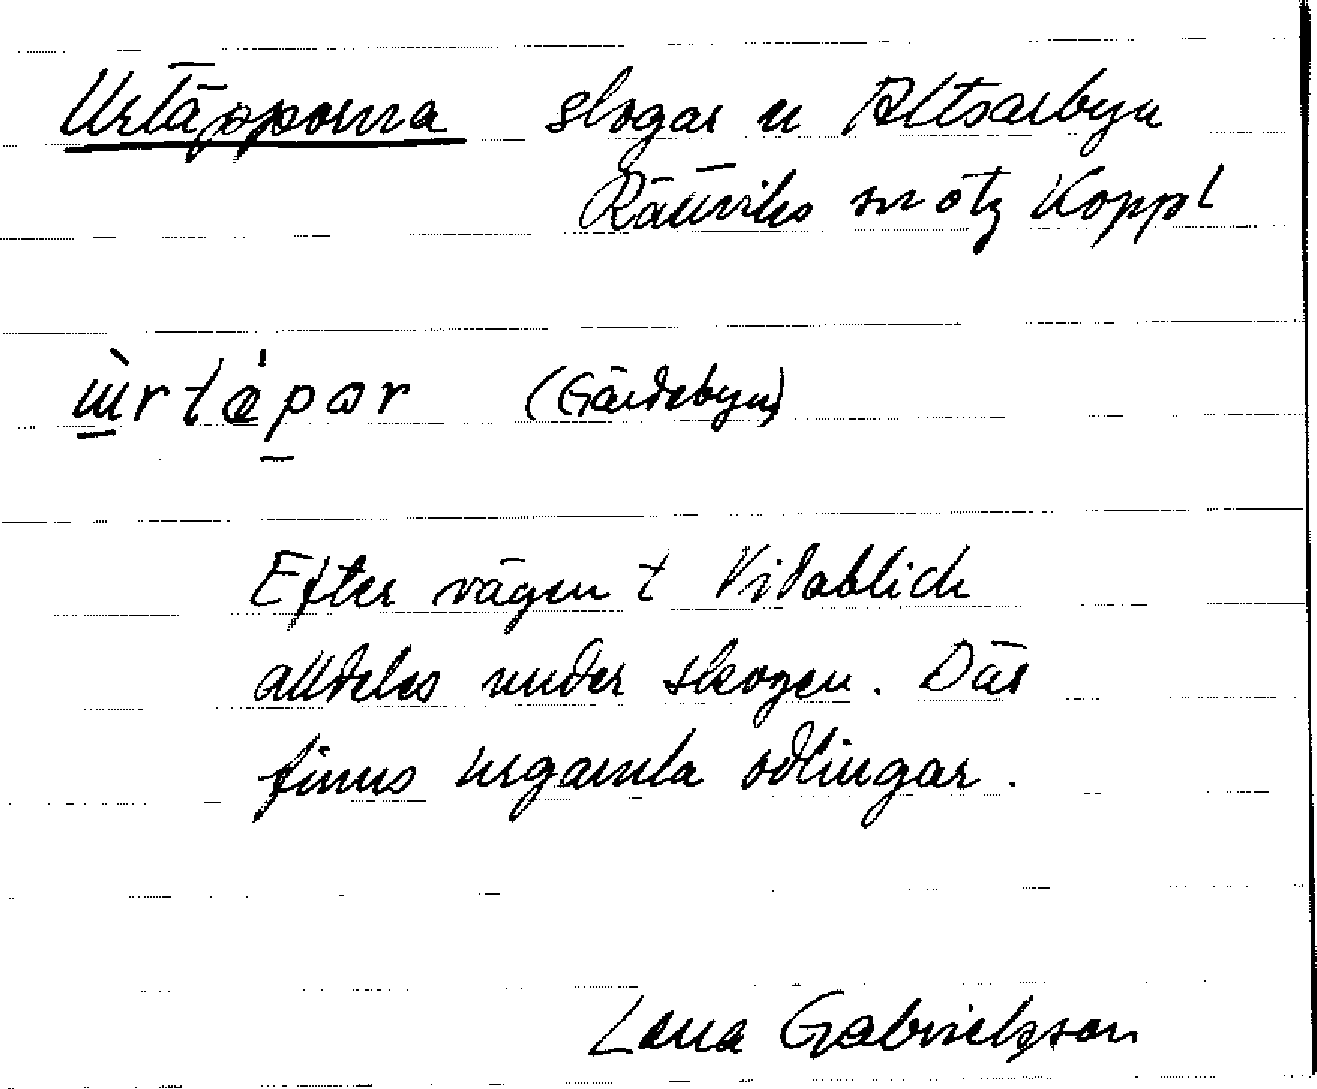 Urtäpporna slogar u Altsarbyn
Rättviks sn ötg Koppl
ùrtäpar (Gärdebyn)
Efter vägen t Vidablick
alldeles under skogen. Där
finns urgamla odlingar.
Lana Gabrielsson